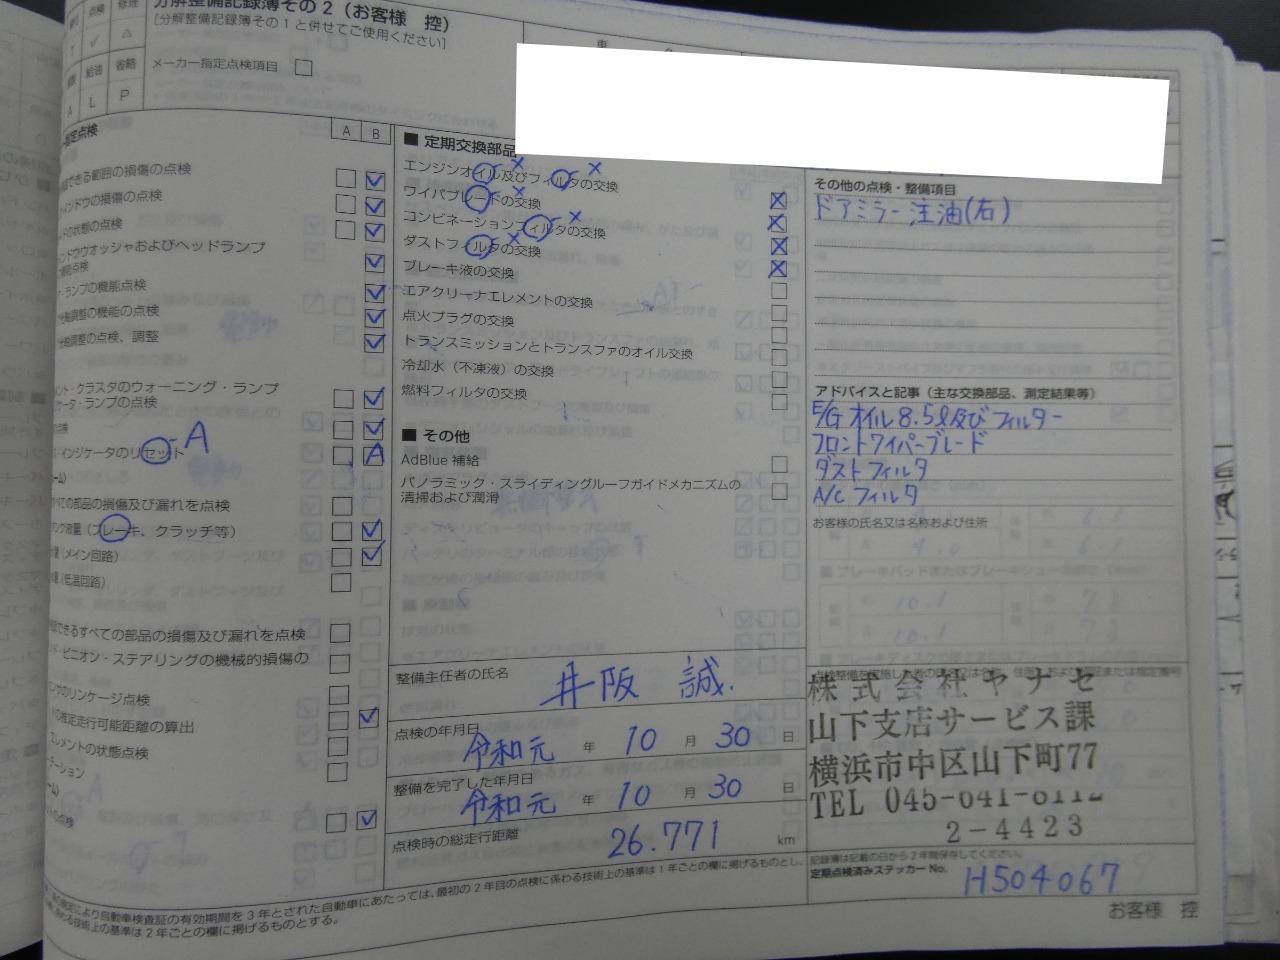 分解整備記録簿その2(お客様 控)
[分解整備記録簿その1と併せてご使用ください]
点検 修理
✓ △
給油 省略
A L P
メーカー指定点検項目
指定点検
A B
できる範囲の損傷の点検
インドウの損傷の点検
の状態の点検
ンドウウオッシャおよびヘッドランプ
ランプの機能点検
調整の機能の点検
調整の点検、調整
ント・クラスタのウォーニング・ランプ
ケータ・ランプの点検
インジケータのリセット A
A
ての部品の損傷及び漏れを点検
液量(ブレーキ、クラッチ等)
量(メイン回路)
(低温回路)
できるすべての部品の損傷及び漏れを点検
ド・ピニオン・ステアリングの機械的損傷の
のリンケージ点検
推定走行可能距離の算出
エレメントの状態点検
の点検
■ 定期交換部品
エンジンオイル及びフィルタの交換
ワイパブレードの交換
コンビネーションフィルタの交換
ダストフィルタの交換
ブレーキ液の交換
エアクリーナエレメントの交換
点火プラグの交換
トランスミッションとトランスファのオイル交換
冷却水(不凍液)の交換
燃料フィルタの交換
■ その他
AdBlue 補給
パノラミック・スライディングルーフガイドメカニズムの
清掃および潤滑
整備主任者の氏名
井阪 誠.
点検の年月日
令和元 年 10 月 30 日
整備を完了した年月日
令和元 年 10 月 30 日
点検時の総走行距離
26.771 km
その他の点検・整備項目
ドアミラー注油(右)
アドバイスと記事(主な交換部品、測定結果等)
E/G オイル 8.5ℓ及びフィルター
フロントワイパーブレード
ダストフィルタ
A/C フィルタ
お客様の氏名又は名称および住所
株式会社ヤナセ
山下支店サービス課
横浜市中区山下町77
TEL 045-641-8112
2-4423
記録簿は記載の日から2年間保存してください。
定期点検済みステッカー No.
H504067
により自動車検査証の有効期間を3年とされた自動車にあたっては、最初の2年目の点検に係わる技術上の基準は1年ごとの欄に掲げるものとし、
技術上の基準は2年ごとの欄に掲げるものとする。
お客様 控